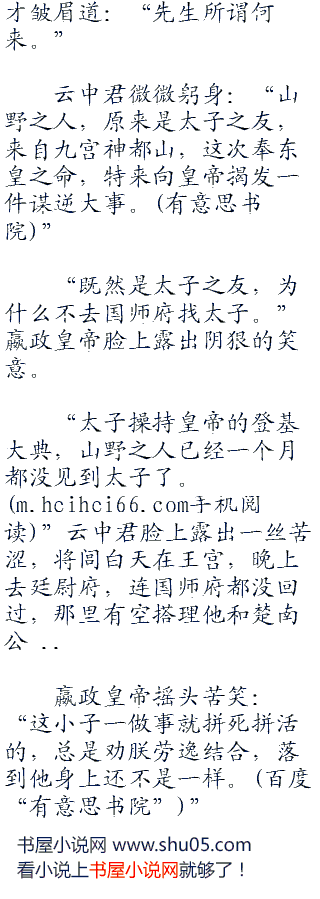 才皱眉道：“先生所谓何
来。”
云中君微微躬身：“山
野之人，原来是太子之友，
来自九宫神都山，这次奉东
皇之命，特来向皇帝揭发一
件谋逆大事。(有意思书
院)”
“既然是太子之友，为
什么不去国师府找太子。”
嬴政皇帝脸上露出阴狠的笑
意。
“太子操持皇帝的登基
大典，山野之人已经一个月
都没见到太子了。
(m.hcihci66.com手机阅
读)”云中君脸上露出一丝苦
涩，将闾白天在王宫，晚上
去廷尉府，连国师府都没回
过，那里有空搭理他和楚南
公 ..
嬴政皇帝摇头苦笑：
“这小子一做事就拼死拼活
的，总是劝朕劳逸结合，落
到他身上还不是一样。(百度
“有意思书院”)”
书屋小说网 www.shu05.com
看小说上书屋小说网就够了！